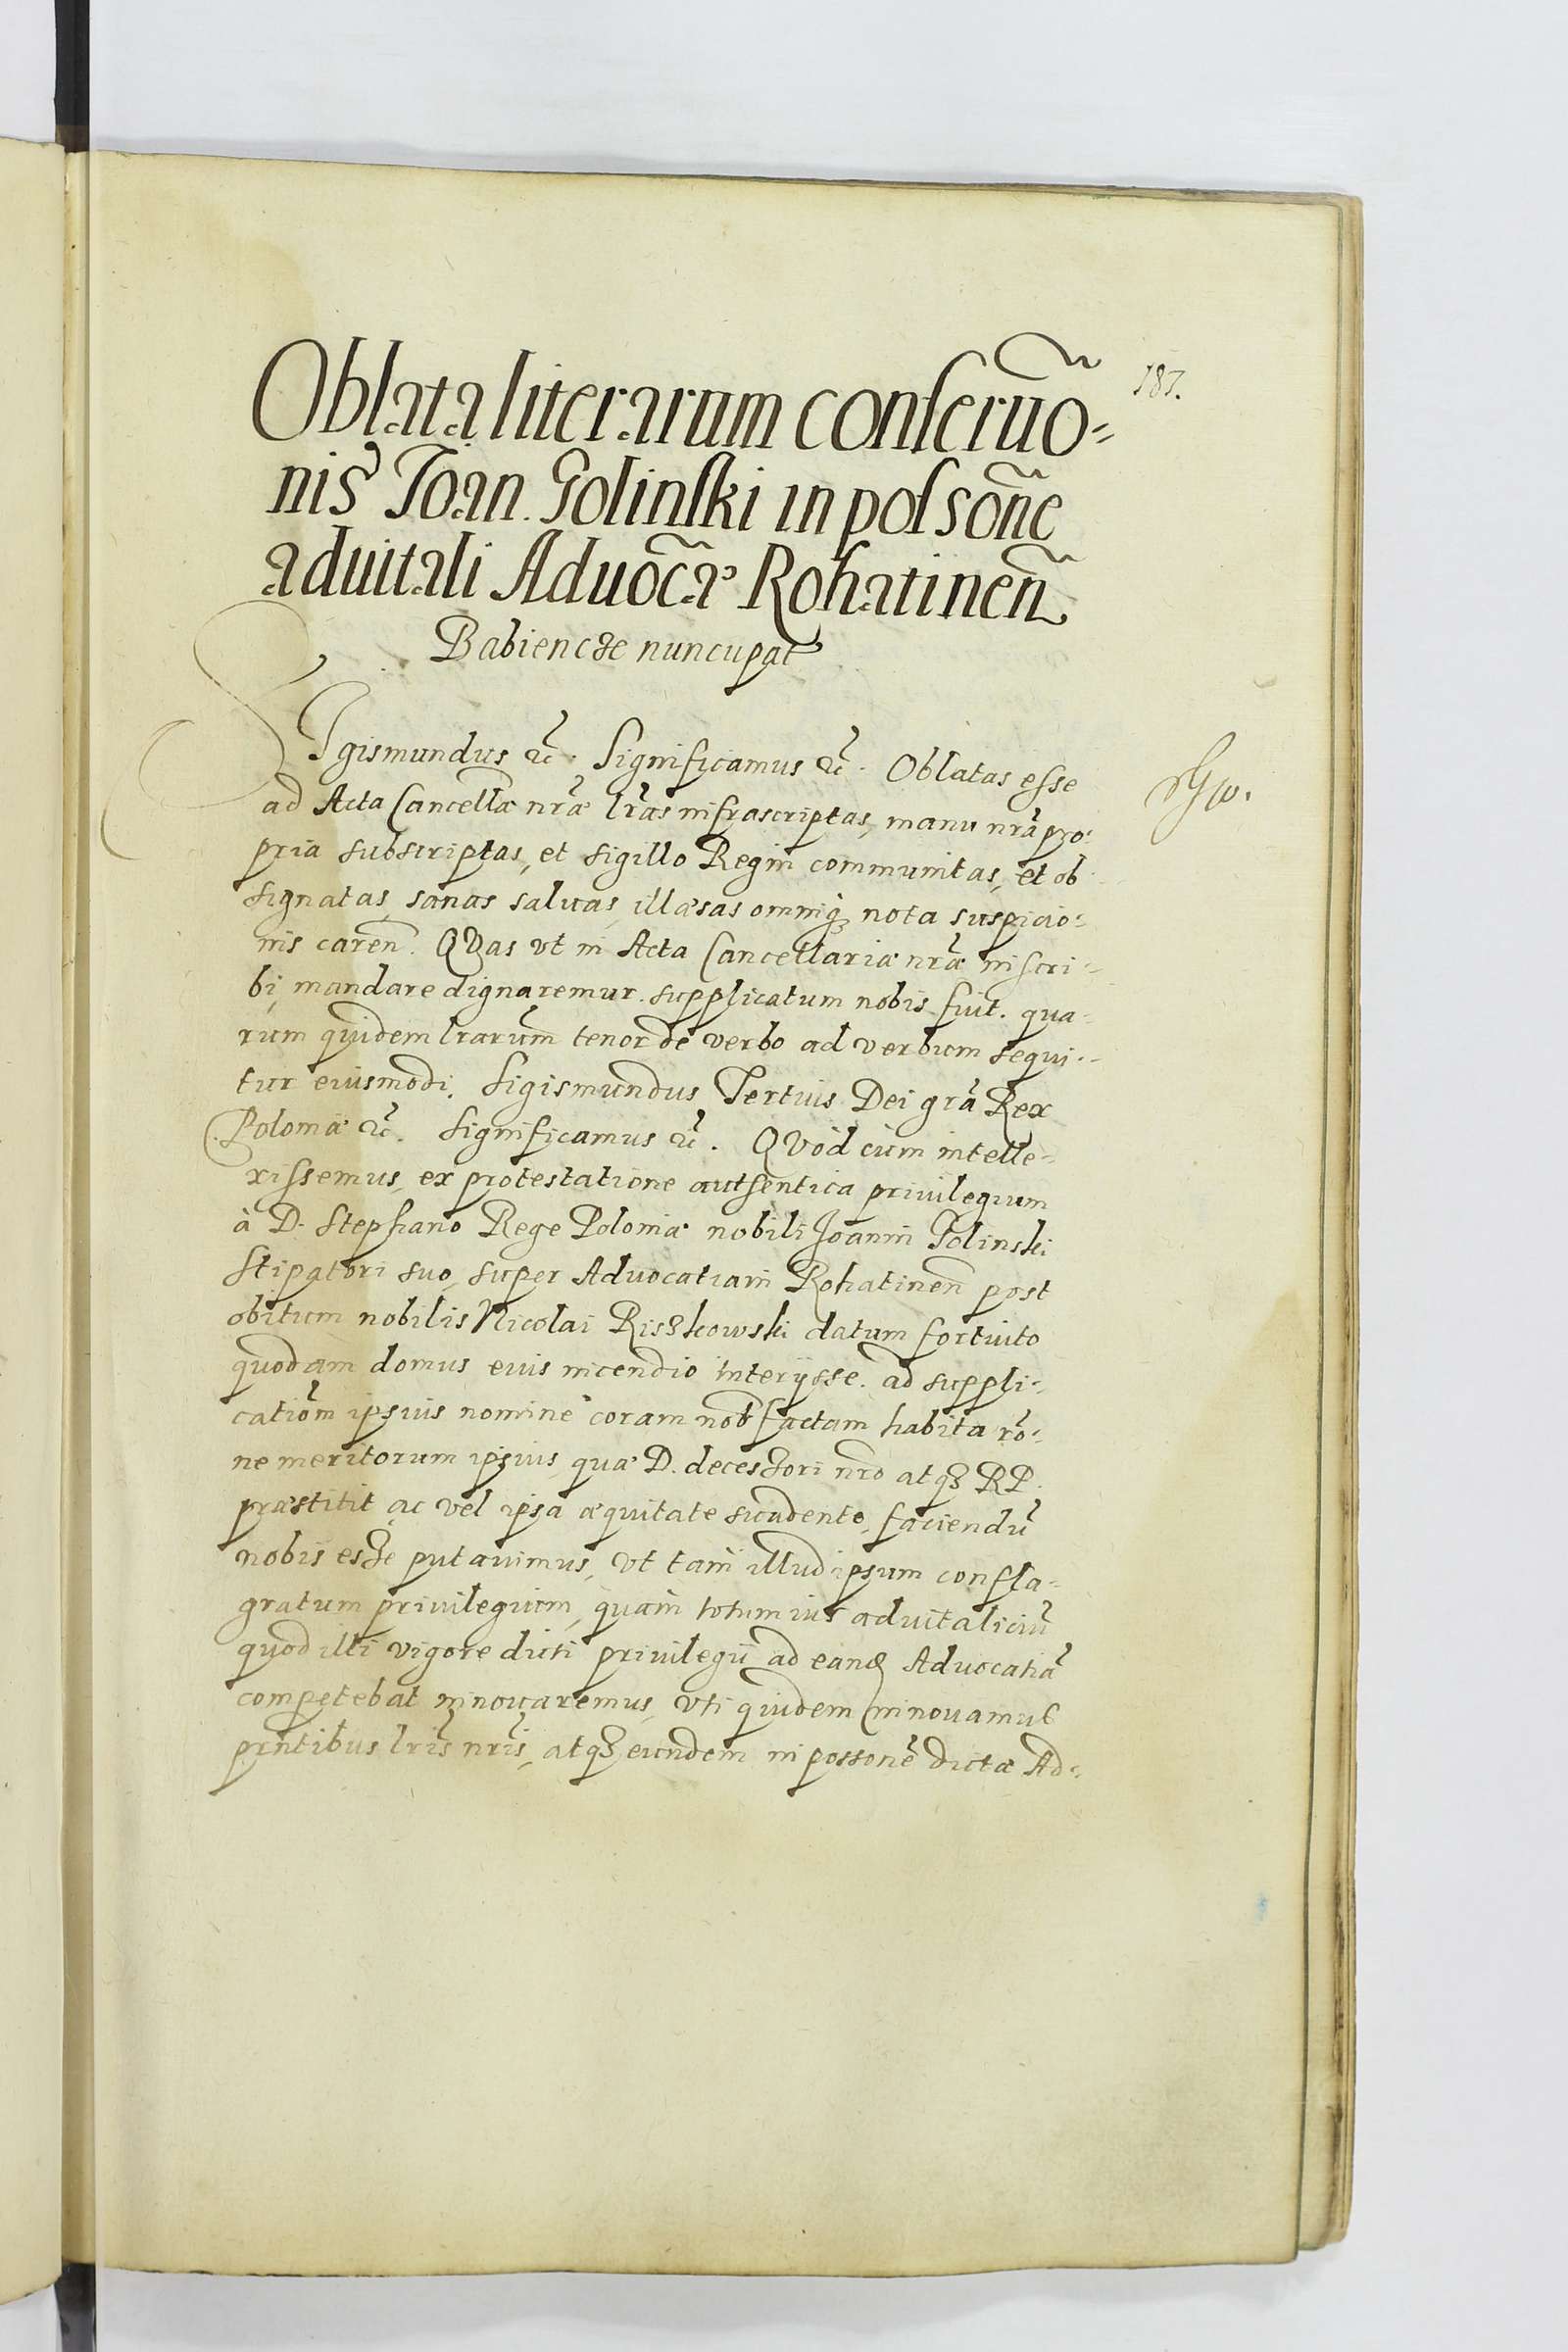 187.
Oblata literarum conseruõ-
nis Joan. Golinski in possõne
aduitali Aduocã Rohatinen̄
Babiencze nuncupat
SIgismundus &c. Significamus &c. Oblatas esse
ad Acta Cancellæ nr̃æ lr̃as infrascriptas, manu nr̃a pro-
pria subscriptas, et sigillo Regni communitas, et ob
signatas, sanas saluas, illæsas omniq3 nota suspicio-
nis caren̄. QVas vt in Acta Cancellariæ nr̃æ inscri-
bi, mandare dignaremur. supplicatum nobis fuit. qua-
rum quidem lrarum̃ tenor de verbo ad verbum sequi-
tur eiusmodi. Sigismundus Tertius Dei grã Rex
Poloniæ &c. Significamus &c. QVòd cùm intelle-
xissemus, ex protestatione authentica priuilegium
à D. Stephano Rege Poloniæ nobili Joanni Golinski
Stipatori suo, super Aduocatiam Rohatinen̄ post
obitum nobilis Nicolai Riszkowski datum fortuito
quodam domus eius incendio interijsse. ad suppli-
catiõm ipsius nomine coram nob factam habita rõ-
ne meritorum ipsius, quæ D. decessori nr̃o atq3 RP.
præstitit ac vel ipsa æquitate suadente, faciendũ
nobis esse putauimus, vt tam illud ipsum confla-
gratum priuilegium, quàm totum ius aduitaliciũ
quod illi vigore dicti priuilegij ad eand Aduocatiã
competebat innouaremus, vti quidem innouamus
prñtibus lr̃is nr̃is, atq3 eundem in possonẽ dictæ Ad-